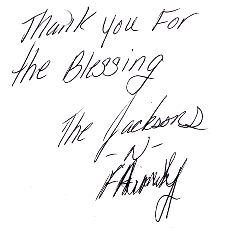 Thank you For
the Blessing
The Jacksons
-N-
FAimily